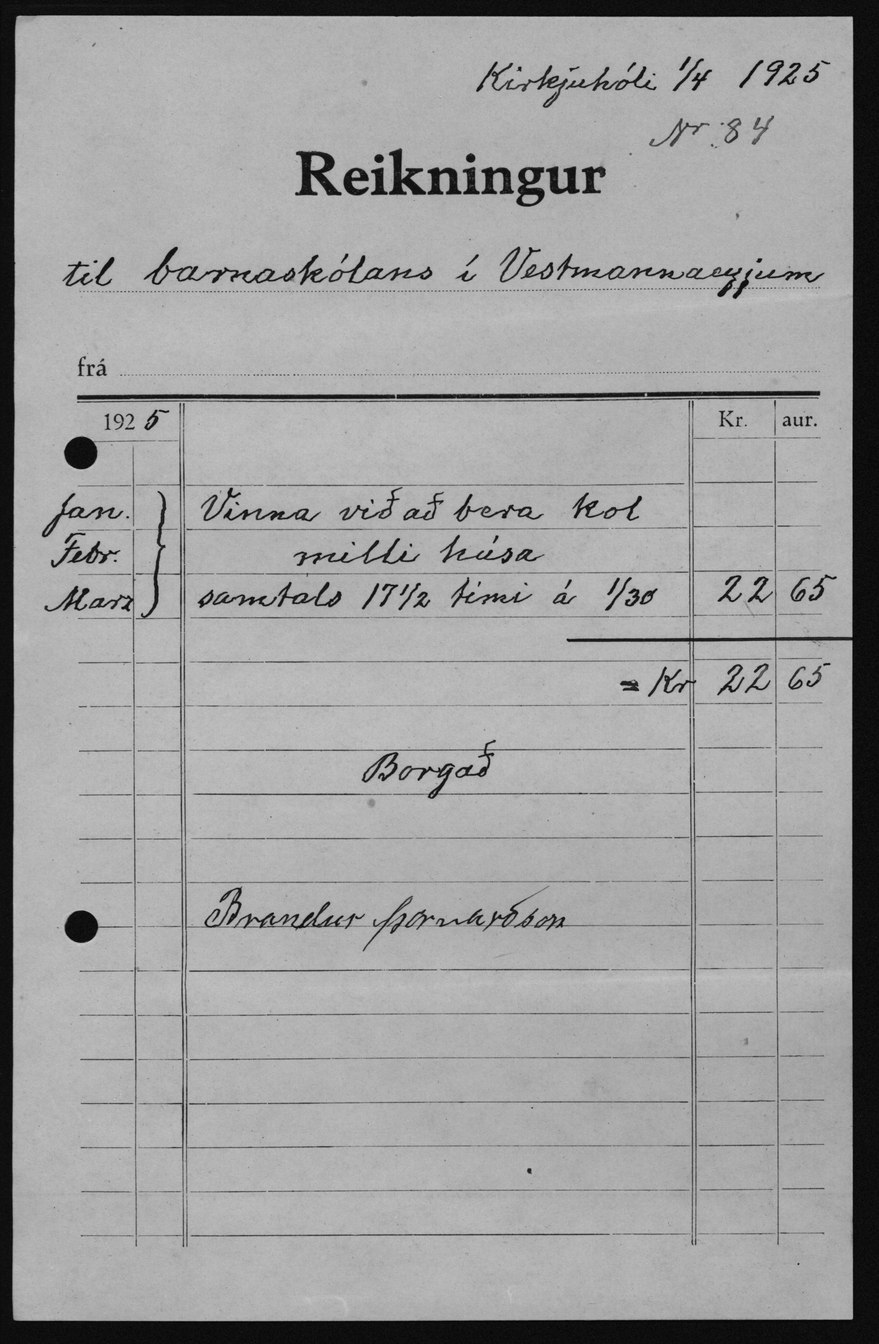 Kirkjuhóli 1/4 1925
Nr. 84
Reikningur
til barnaskólans í Vestmannaeyjum
frá
1925 Kr. aur.
Jan. Vinna við að bera kol
Febr. milli húsa
Marz samtals 17 1/2 tími á 1/30 22 65
= Kr 22 65
Borgað
Brandur